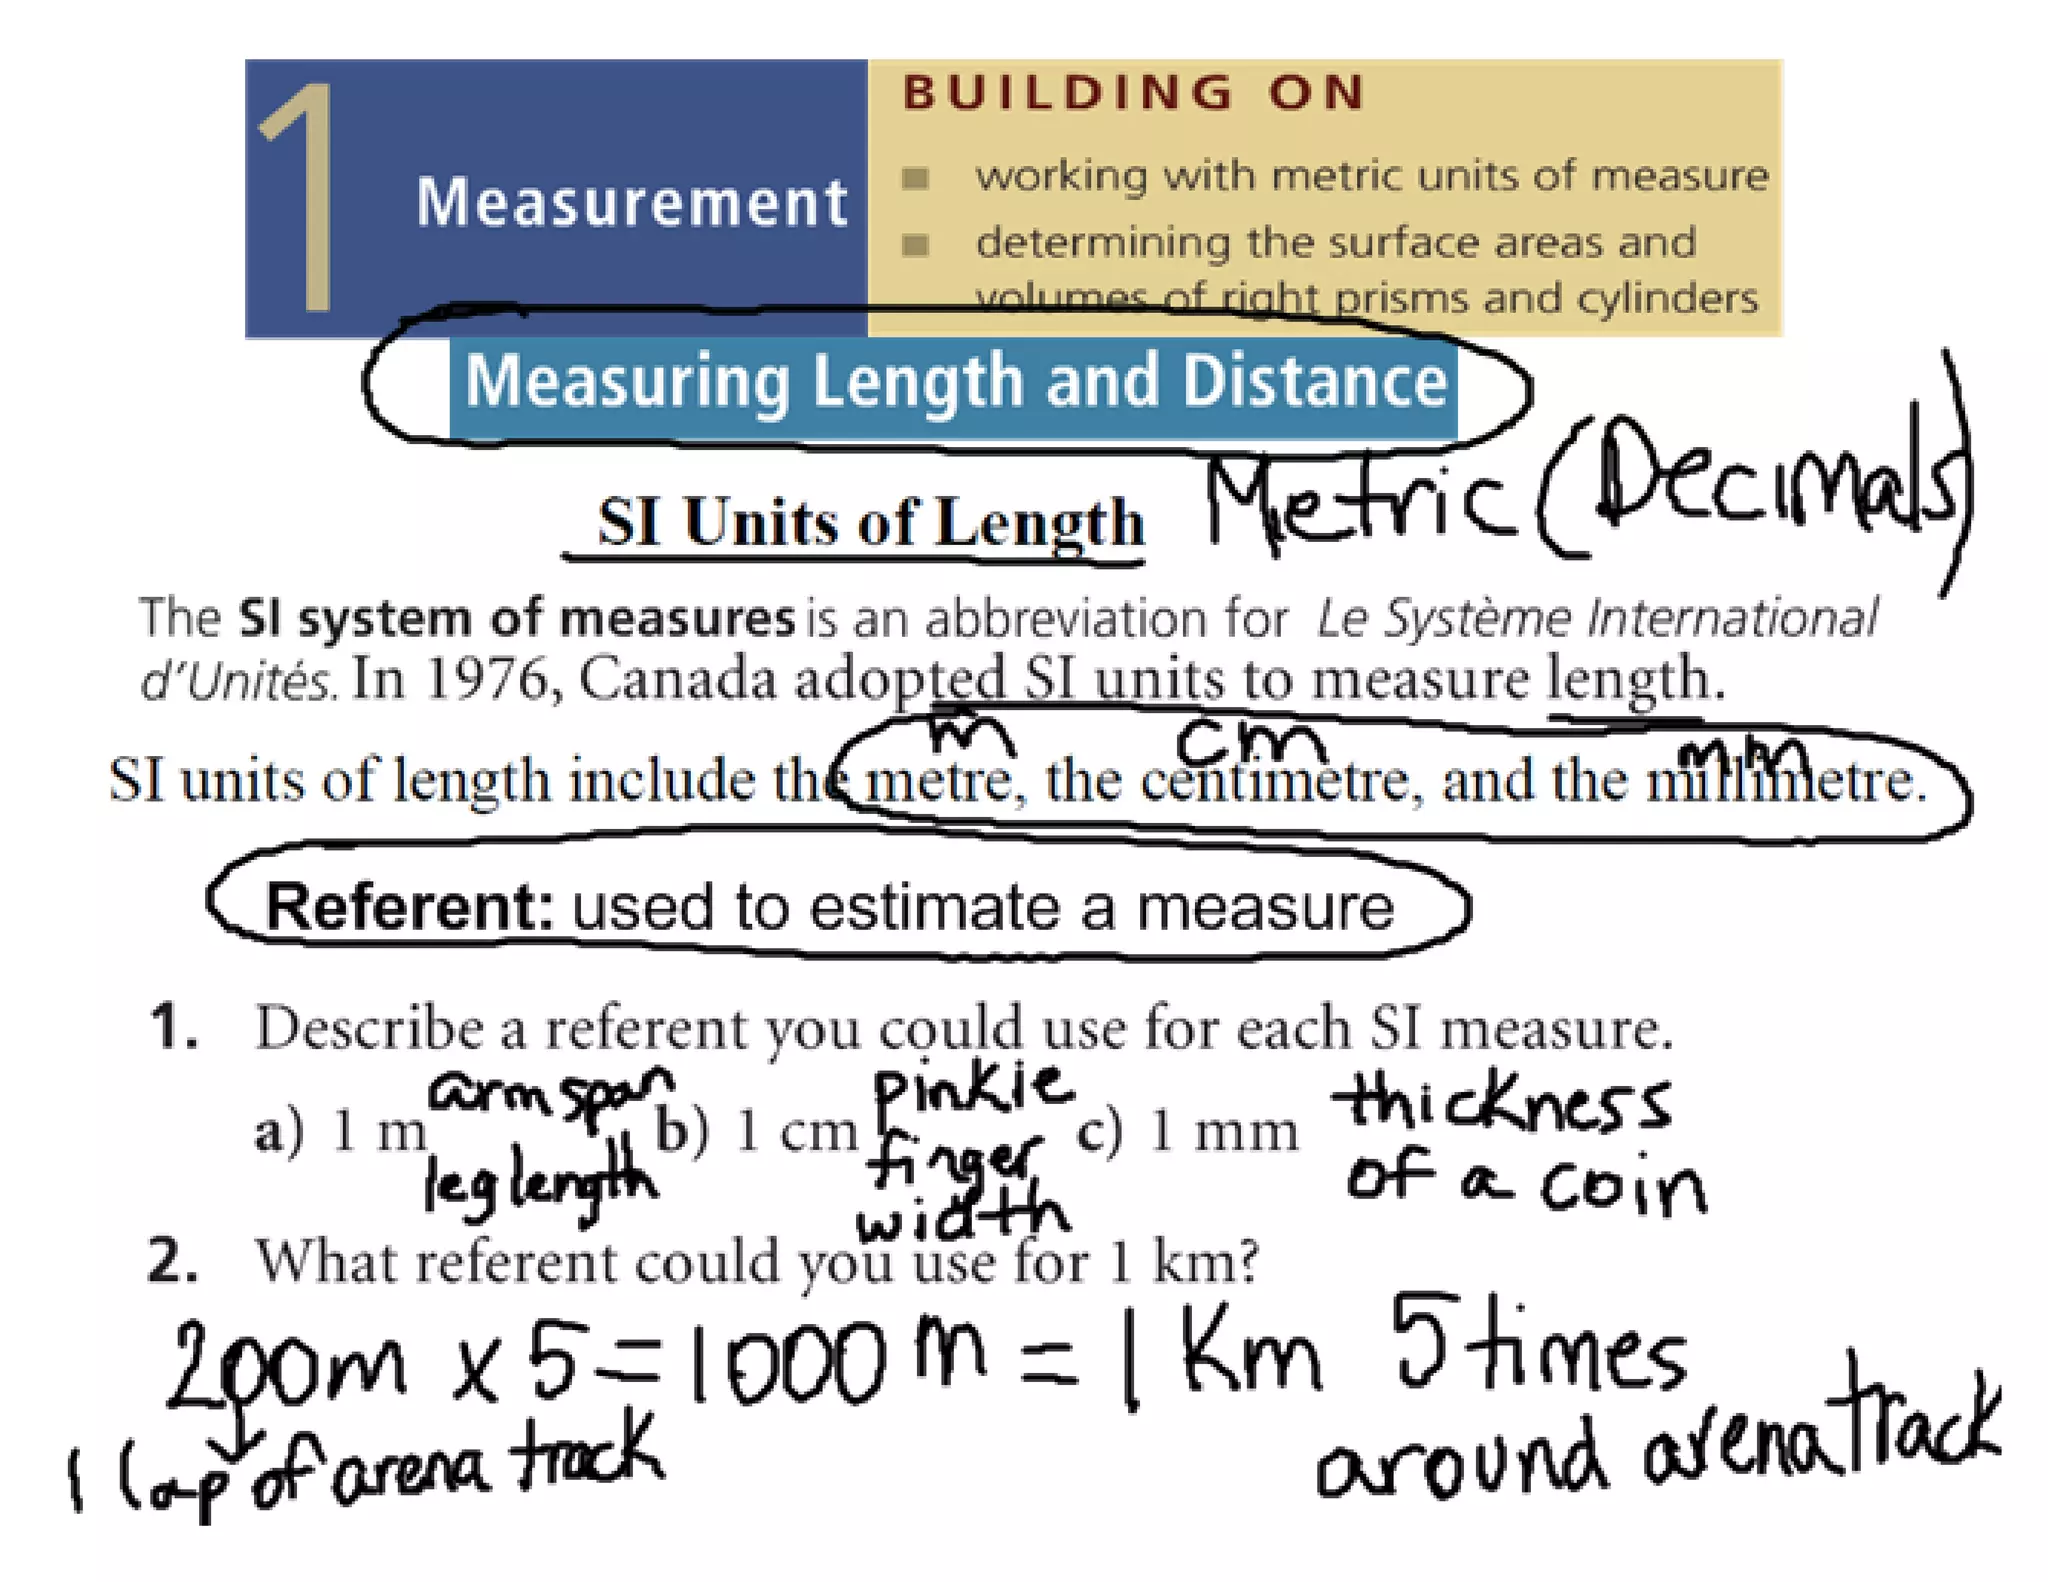 1 Measurement
BUILDING ON
■ working with metric units of measure
■ determining the surface areas and
volumes of right prisms and cylinders
Measuring Length and Distance
SI Units of Length Metric (Decimals)
The SI system of measures is an abbreviation for Le Système International
d'Unités. In 1976, Canada adopted SI units to measure length.
m cm mm
SI units of length include the metre, the centimetre, and the millimetre.
Referent: used to estimate a measure
1. Describe a referent you could use for each SI measure.
a) 1 m arm span leg length
b) 1 cm pinkie finger width
c) 1 mm thickness of a coin
2. What referent could you use for 1 km?
200m x 5 = 1000 m = 1 Km 5 times
1 lap of arena track around arena track